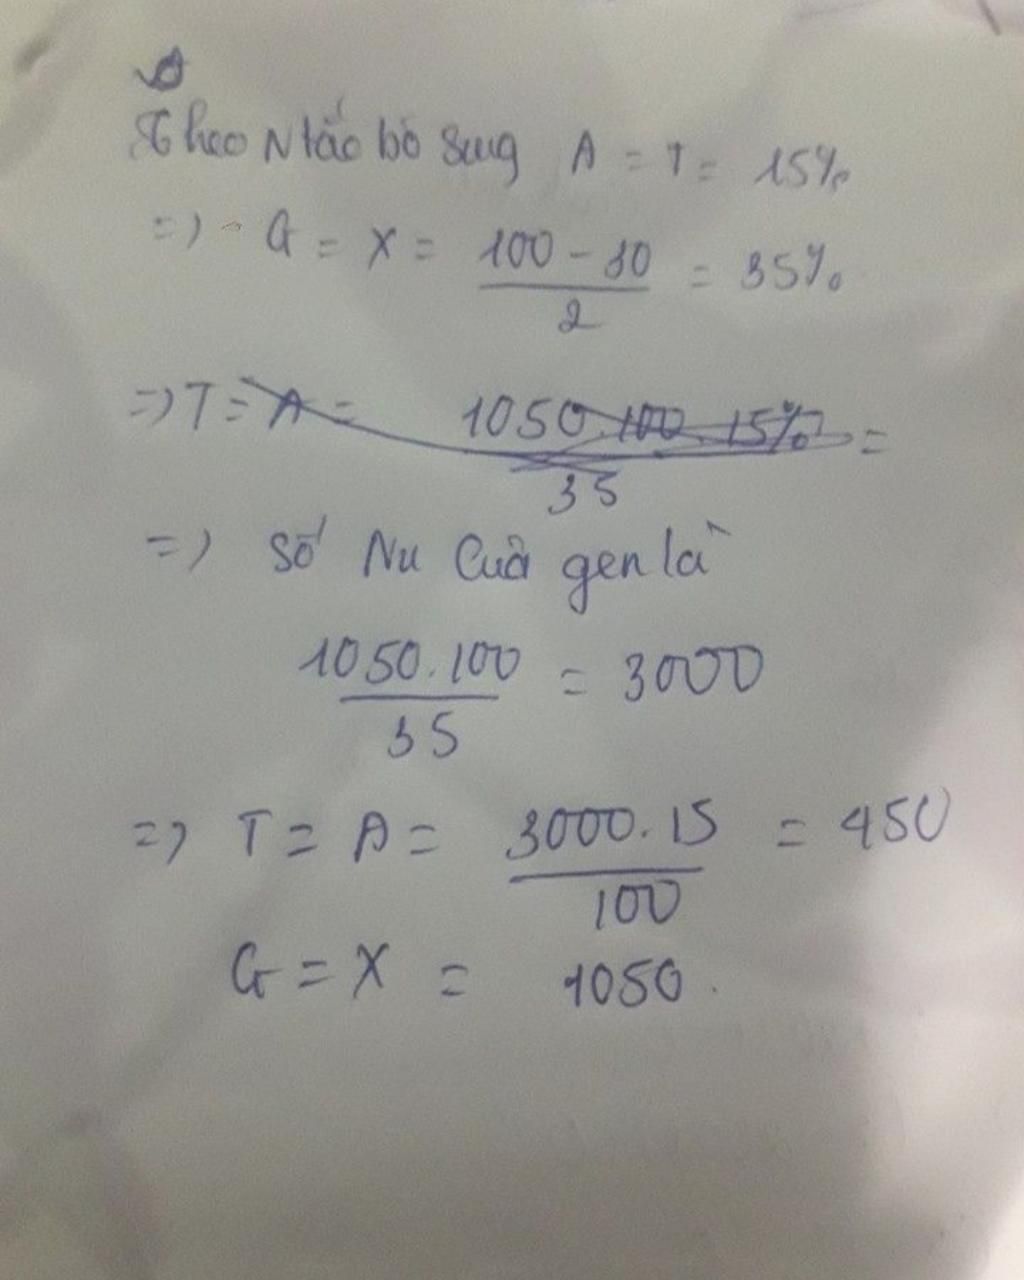 Theo Ntắc bổ sung A = T = 15%
=> G = X = 100 - 30 / 2 = 35%
=> T = A = 1050.100.15% / 35 =
=> số Nu của gen là
1050.100 / 35 = 3000
=> T = A = 3000.15 / 100 = 450
G = X = 1050.